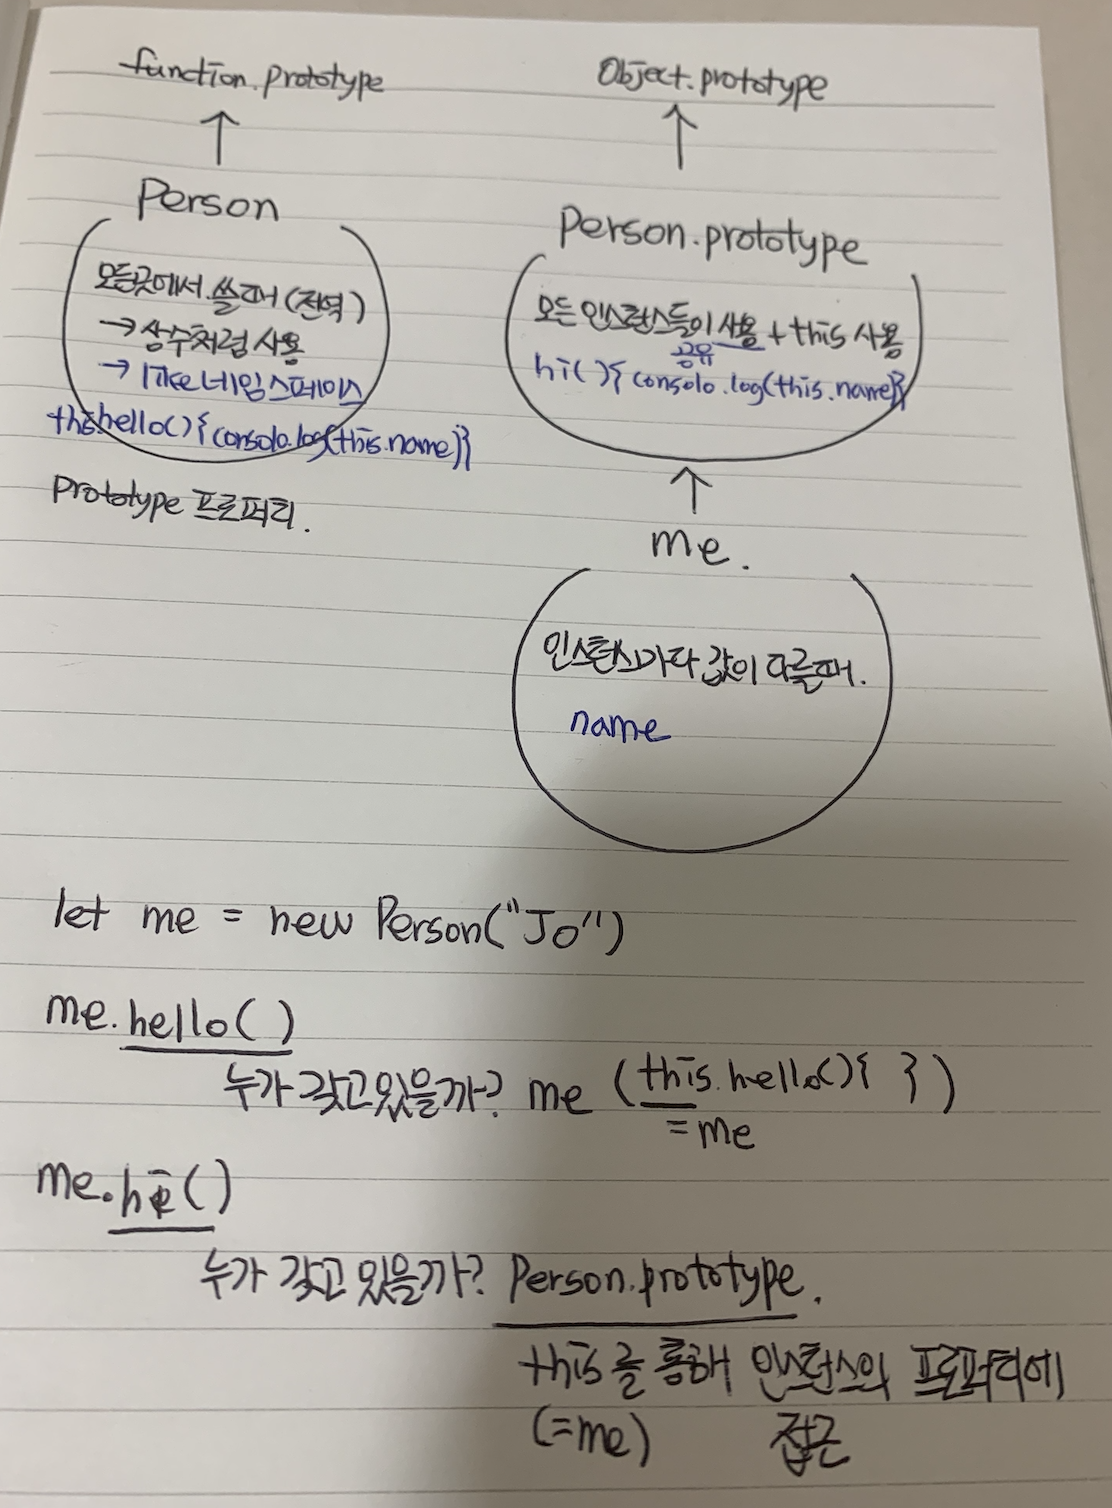 function.prototype
Object.prototype
Person
모든곳에서 쓸때 (전역)
→ 상수처럼 사용
→ like 네임스페이스
this.hello(){consolo.log(this.name)}
prototype 프로퍼티.
Person.prototype
모든 인스턴스들이 사용 + this 사용
공유
hi(){consolo.log(this.name)}
me.
인스턴스마다 값이 다를때.
name
let me = new Person("Jo")
me.hello()
누가 갖고있을까? me (this.hello(){ })
=me
me.hi()
누가 갖고 있을까? Person.prototype.
this를 통해 인스턴스의 프로퍼티에
(=me) 접근